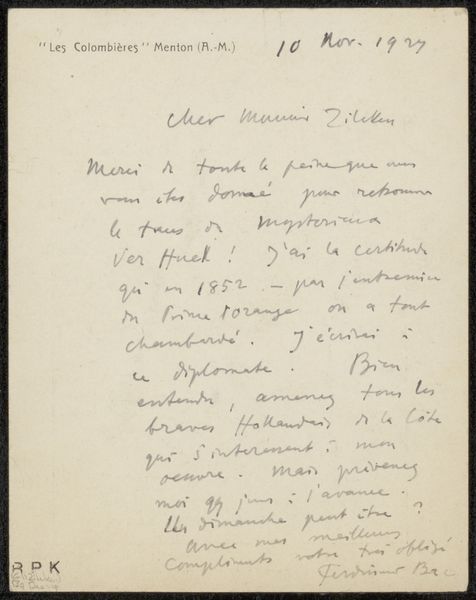 "Les Colombières" Menton (A.-M.)
10 Nov. 1927
Cher Monsieur Zilcken
Merci de toute la peine que vous
vous êtes donné pour retrouver
le du mysterieux
Ver Huell ! J'ai la certitude
qu'en 1852 - par l'entremise
du Prince d'orange on a tout
chambardé. J'écrirai à
ce diplomate. Bien
entendu, amenez tous les
braves Hollandais de la Côte
qui s'interessent à mon
oeuvre. Mais prévenez
moi qq jours à l'avance.
Un dimanche peut être ?
Avec mes meilleurs
compliments votre très obligé
Ferdinand Bac
RPK